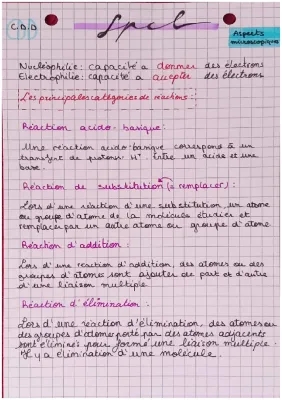 C.D.D
Spcl
Aspects
microscopiques
Nucléophilie: capacité a donner des électrons
Electrophilie: capacité a accepter des électrons
Les principales catégories de réactions:
Réaction acido-basique:
Une réaction acido-basique correspond à un
transfert de protons H⁺. Entre un acide et une
base.
Réaction de substitution (= remplacer) :
Lors d'une réaction d'une substitution, un atome
ou groupe d'atome de la molécule étudier est
remplacer par un autre atome ou groupe d'atome
Réaction d'addition :
Lors d'une réaction d'addition, des atomes ou des
groupes d'atomes sont ajouter de part et d'autre
d'une liaison multiple.
Réaction d'élimination :
Lors d'une réaction d'élimination, des atomes ou
des groupes d'atomes porté par des atomes adjacents
sont éliminés pour formé une liaison multiple.
Il y a élimination d'une molécule.